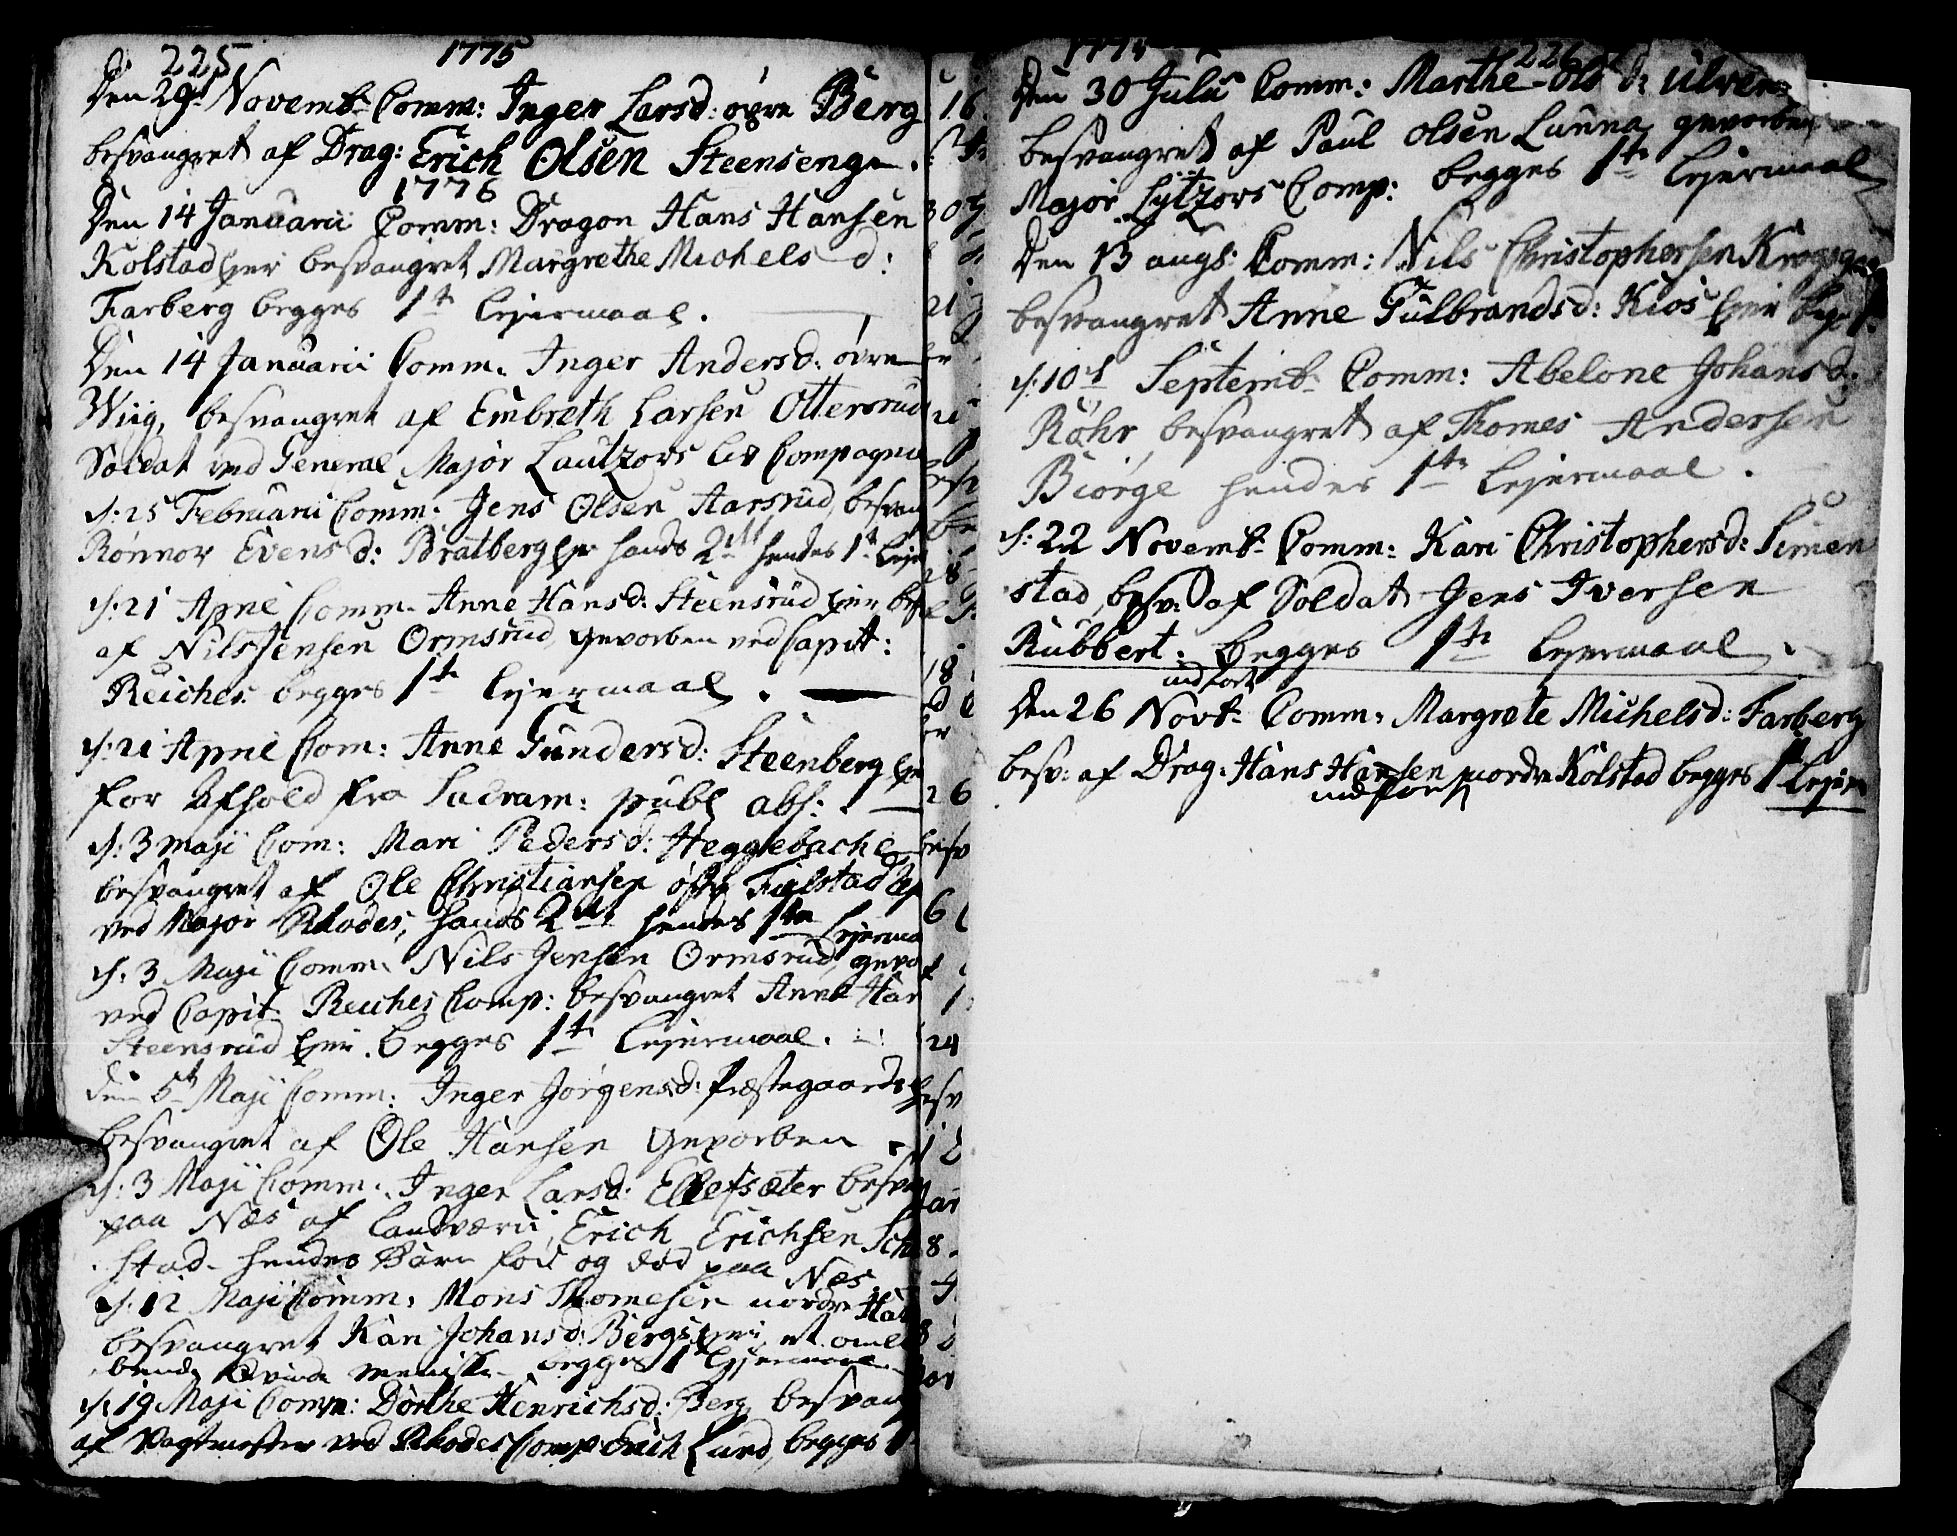 225
1775
Den 29de Novemb: Comm: Inger Larsd: øvre Berg
besvangret af Drag: Erich Olsen Steensengen.
1776
Den 14 Januarii Comm: Dragon Hans Hansen
Kolstad besvangret Margrethe Michels d:
Farberg begges 1te Lejermaal.
Den 14 Januarii Comm. Inger Andersd: øvre
Wiig, besvangret af Embreth Larsen Ottersrud
Soldat ved General Major Lautzors Liv Compagnie
d: 25 Februarii Comm. Jens Olsen Aarsrud, besvan
Rønnov Evensd: Bratberg hands 2det hendes 1te Leje
d: 21 April Comm. Anne Hansd: Steensrud besv
af Nils Jensen Ormsrud, gevorben ved Capit:
Reiches begges 1te Lejermaal.
d: 21 April Com: Anne Gundersd: Steenberg
for Afhold fra Sacram: publ abs:
d: 3 Maji Com: Mari Pedersd: Heggebache
besvangret af Ole Christiansen Fielstad
ved Major Rhodes, hands 2det hendes 1te Lejerma
d: 3 Maji Comm. Nils Jensen Ormsrud, gevo
ved Capit. Reiches Comp: besvangret Anne Han
Steensrud begges 1te Lejermaal.
Den 5te Maji Comm: Inger Jørgensd: Præstegaards
besvangret af Ole Hansen Gevorben
d: 3 Maji Comm. Inger Larsd: Ellefsæter besva
paa Næs af Landværn Erich Erichsen Sch
stad. hendes Barn fød og død paa Næs.
d: 12 Maji Comm: Mons Thomesen nordre
besvangret Kari Johansd: Bergs et omlø
bende Qvinde Meniske. begges 1te Lejermaal
d: 19 Maji Comm: Dorthe Henrichsd: Berg besvan
af Vagtmester ved Rhodes Comp Erich Lund, begges 1
226
Den 30 Julii Comm: Marthe Ols d: Ulven
besvangret af Paul Olsen Lunna, gevorben
Major Lytzors Comp: begges 1te Lejermaal
Den 13 augs: Comm: Nils Christophersen
besvangret Anne Gulbrandsd: Kios
d: 10de Septemb: Comm: Abelone Johans d:
Røhr, besvangret af Thomes Andersen
Biørge hendes 1te Lejermaal.
d: 22 Novemb: Comm: Kari Christophersd: Simen
stad, besv: af Soldat Jens Iversen
Rubbert. begges 1te Lejermaal.
indført
Den 26 Novb: Comm: Margrete Michelsd: Farberg
besv: af Drag: Hans Hansen nordre Kolstad begges 1te Lejer
indført